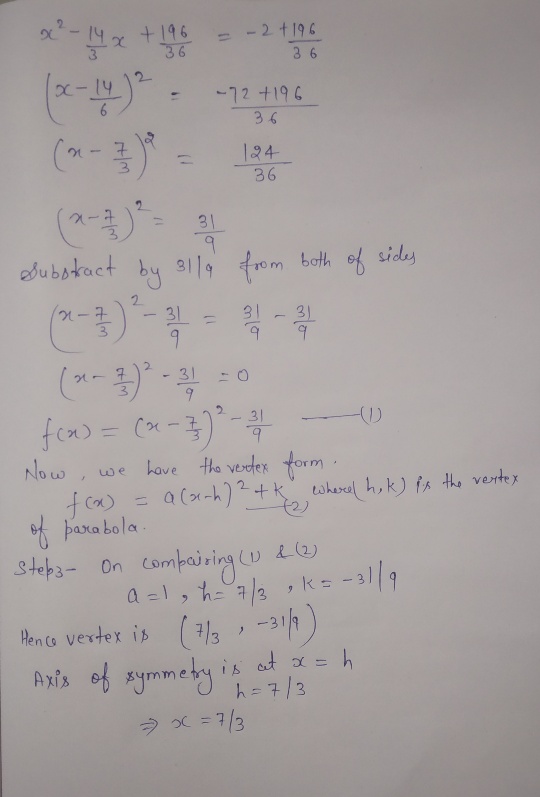 x² - 14/3 x + 196/36 = -2 + 196/36
(x - 14/6)² = -72 + 196/36
(x - 7/3)² = 124/36
(x - 7/3)² = 31/9
Substract by 31/9 from both of sides
(x - 7/3)² - 31/9 = 31/9 - 31/9
(x - 7/3)² - 31/9 = 0
f(x) = (x - 7/3)² - 31/9 —(1)
Now, we have the vertex form.
f(x) = a(x-h)² + k —(2), where (h,k) is the vertex
of parabola.
Step3- On compairing (1) & (2)
a = 1, h = 7/3, k = -31/9
Hence vertex is (7/3, -31/9)
Axis of symmetry is at x = h
h = 7/3
⇒ x = 7/3